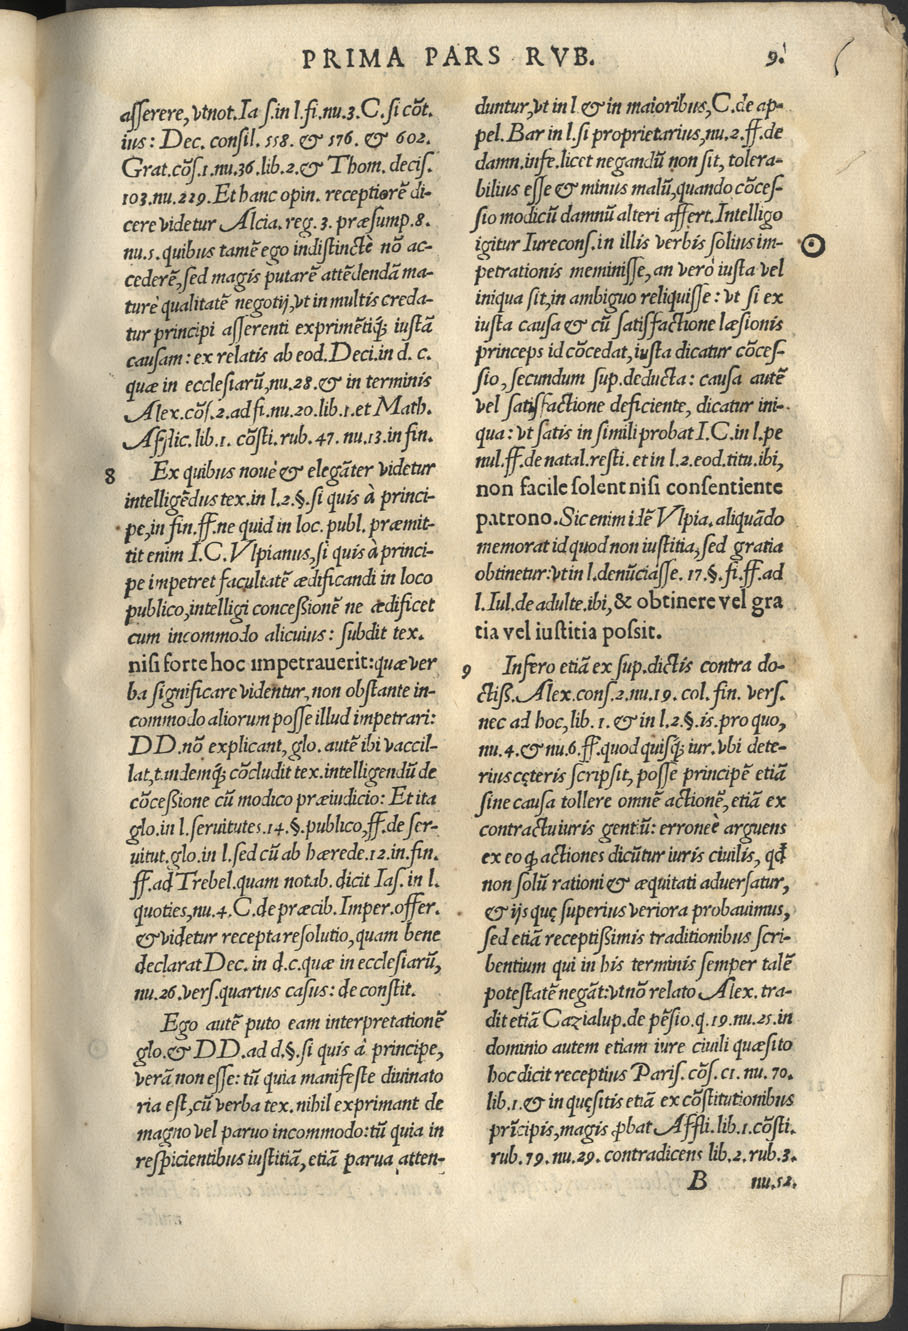 PRIMA PARS RVB. 9.
aſſerere, vtnot. Ia ſ.in l.fi.nu.3.C.ſi cõt.
ius: Dec. conſil. 558. & 576. & 602.
Grat.cõſ.1.nu.36.lib.2.& Thom. deciſ.
103.nu.229. Et hanc opin. receptiorẽ di-
cere videtur Alcia. reg. 3. præſump. 8.
nu.5. quibus tamẽ ego indiſtinctè nõ ac-
cederẽ, ſed magis putarẽ attẽdendã ma-
turè qualitatẽ negotij, vt in multis creda-
tur principi aſſerenti exprimẽtiq́; iuſtã
cauſam: ex relatis ab eod. Deci.in d. c.
quæ in eccleſiarũ, nu.28.& in terminis
Alex.cõſ.2.ad fi.nu.20.lib.1.et Math.
Afflic.lib.1. cõſti. rub. 47. nu.13.in fin.
8 Ex quibus nouè & elegãter videtur
intelligẽdus tex.in l.2.§.ſi quis à princi-
pe, in fin.ff.ne quid in loc. publ. præmit-
tit enim I.C. Vlpianus, ſi quis à princi-
pe impetret facultatẽ ædificandi in loco
publico, intelligi conceßionẽ ne ædificet
cum incommodo alicuius: ſubdit tex.
niſi forte hoc impetrauerit: quæ ver
ba ſignificare videntur, non obſtante in-
commodo aliorum poſſe illud impetrari:
DD.nõ explicant, glo. autẽ ibi vaccil-
lat, tandemq́; cõcludit tex.intelligendũ de
cõceßione cũ modico præiudicio: Et ita
glo.in l.ſeruitutes.14.§.publico, ff.de ſer-
uitut.glo.in l.ſed cũ ab hærede.12.in fin.
ff.ad Trebel.quam notab. dicit Iaſ. in l.
quoties, nu.4.C.de præcib. Imper.offer.
& videtur recepta reſolutio, quam bene
declarat Dec. in d.c.quæ in eccleſiarũ,
nu.26.verſ.quartus caſus: de conſtit.
Ego autẽ puto eam interpretationẽ
glo.& DD.ad d.§.ſi quis à principe,
verã non eſſe: tũ quia manifeſte diuinato
ria eſt, cũ verba tex.nihil exprimant de
magno vel paruo incommodo: tũ quia in
reſpicientibus iuſtitiã, etiã parua atten-
duntur, vt in l.& in maioribus, C.de ap-
pel. Bar in l.ſi proprietarius, nu.2.ff.de
damn.infe.licet negandũ non ſit, tolera-
bilius eſſe & minus malũ, quando cõceſ-
ſio modicũ damnũ alteri affert. Intelligo
igitur Iureconſ.in illis verbis ſolius im-
petrationis meminiſſe, an verò iuſta vel
iniqua ſit, in ambiguo reliquiſſe: vt ſi ex
iuſta cauſa & cũ ſatisfactione læſionis
princeps id cõcedat, iuſta dicatur cõceſ-
ſio, ſecundum ſup.deducta: cauſa autẽ
vel ſatisfactione deficiente, dicatur ini-
qua: vt ſatis in ſimili probat I.C.in l.pe
nul.ff.de natal.reſti. et in l.2.eod.titu.ibi,
non facile ſolent niſi conſentiente
patrono. Sic enim idẽ Vlpia. aliquãdo
memorat id quod non iuſtitia, ſed gratia
obtinetur: vt in l.denũciaſſe. 17.§.fi.ff.ad
l.Iul.de adulte.ibi, & obtinere vel gra
tia vel iuſtitia poſsit.
9 Infero etiã ex ſup.dictis contra do-
ctiß. Alex.conſ.2.nu.19. col.fin. verſ.
nec ad hoc, lib. 1. & in l.2.§.is.pro quo,
nu.4.& nu.6.ff.quod quiſq́; iur. vbi dete-
rius cęteris ſcripſit, poſſe principẽ etiã
ſine cauſa tollere omnẽ actionẽ, etiã ex
contractu iuris gentiũ: erroneè arguens
ex eo ꝙ actiones dicũtur iuris ciuilis, qđ
non ſolũ rationi & æquitati aduerſatur,
& ijs quę ſuperius veriora probauimus,
ſed etiã receptißimis traditionibus ſcri-
bentium qui in his terminis ſemper talẽ
poteſtatẽ negãt: vt nõ relato Alex. tra-
dit etiã Cazialup.de pẽſio.q.19.nu.25.in
dominio autem etiam iure ciuili quæſito
hoc dicit receptius Pariſ. cõſ. c1. nu. 70.
lib.1.& in quęſitis etiã ex cõſtitutionibus
prĩcipis, magis ꝓbat Affli.lib.1.cõſti.
rub. 79. nu.29. contradicens lib.2.rub.3.
B nu.52.